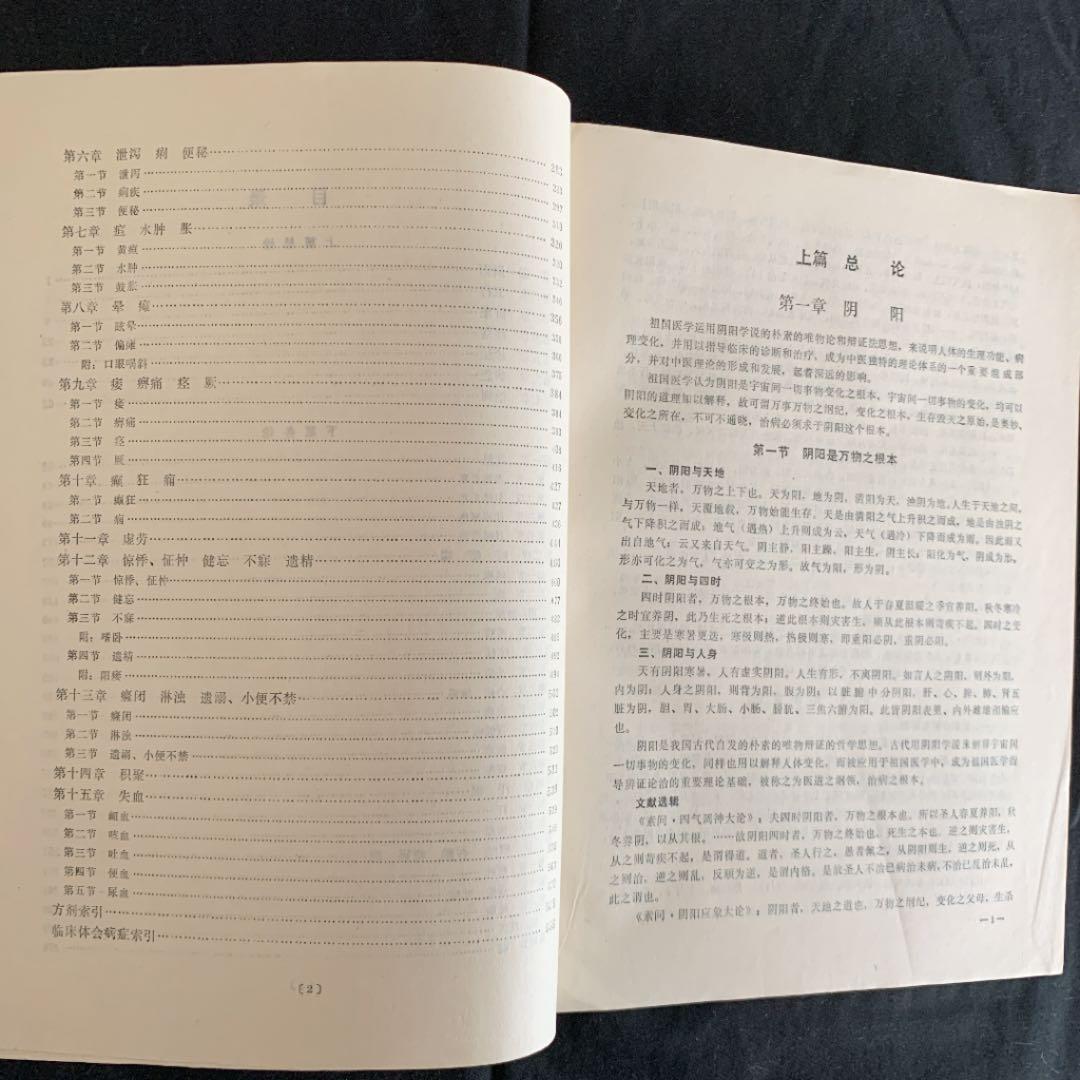 第六章 泄泻 痢 便秘
第一节 泄泻
第二节 痢疾
第三节 便秘
第七章 疸 水肿 胀
第一节 黄疸
第二节 水肿
第三节 鼓胀
第八章 晕 瘫
第一节 眩晕
第二节 偏瘫
附：口眼㖞斜
第九章 痿 痹痛 痉 厥
第一节 痿
第二节 痹痛
第三节 痉
第四节 厥
第十章 癫 狂 痫
第一节 癫狂
第二节 痫
第十一章 虚劳
第十二章 惊悸、怔忡 健忘 不寐 遗精
第一节 惊悸、怔忡
第二节 健忘
第三节 不寐
附：嗜卧
第四节 遗精
附：阳痿
第十三章 癃闭 淋浊 遗溺、小便不禁
第一节 癃闭
第二节 淋浊
第三节 遗溺、小便不禁
第十四章 积聚
第十五章 失血
第一节 衄血
第二节 咳血
第三节 吐血
第四节 便血
第五节 尿血
方剂索引
临床体会病症索引
〔2〕
上篇 总 论
第一章 阴 阳
祖国医学运用阴阳学说的朴素的唯物论和辩证法思想，来说明人体的生理功能、病
理变化，并用以指导临床的诊断和治疗，成为中医独特的理论体系的一个重要组成部
分，并对中医理论的形成和发展，起着深远的影响。
祖国医学认为阴阳是宇宙间一切事物变化之根本，宇宙间一切事物的变化，均可以
阴阳的道理加以解释，故可谓万事万物之纲纪，变化之根本，生存毁灭之原始，是奥妙、
变化之所在，不可不通晓，治病必须求于阴阳这个根本。
第一节 阴阳是万物之根本
一、阴阳与天地
天地者，万物之上下也。天为阳，地为阴，清阳为天，浊阴为地。人生于天地之间，
与万物一样，天覆地载，万物始能生存。天是由清阳之气上升积之而成，地是由浊阴之
气下降积之而成；地气（遇热）上升则成为云，天气（遇冷）下降而成为雨。因此雨又
出自地气；云又来自天气。阴主静，阳主躁，阳主生，阴主长；阳化为气，阴成为形，
形亦可化之为气，气亦可变之为形。故气为阳，形为阴。
二、阴阳与四时
四时阴阳者，万物之根本，万物之终始也。故人于春夏温暖之季宜养阳，秋冬寒冷
之时宜养阴，此乃生死之根本；逆此根本则灾害生，顺从此根本则苛疾不起。四时之变
化，主要是寒暑更迭，寒极则热，热极则寒，即重阳必阴，重阴必阳。
三、阴阳与人身
天有阴阳寒暑，人有虚实阴阳。人生有形，不离阴阳。如言人之阴阳，则外为阳，
内为阴；人身之阴阳，则背为阳，腹为阴；以脏腑中分阴阳，肝、心、脾、肺、肾五
脏为阴，胆、胃、大肠、小肠、膀胱、三焦六腑为阳。此皆阴阳表里、内外雌雄相输应
也。
阴阳是我国古代自发的朴素的唯物辩证的哲学思想。古代用阴阳学说来解释宇宙间
一切事物的变化，同样也用以解释人体变化。而被应用于祖国医学中，成为祖国医学指
导辨证论治的重要理论基础，被称之为医道之纲领，治病之根本。
文献选辑
《素问·四气调神大论》：夫四时阴阳者，万物之根本也。所以圣人春夏养阳，秋
冬养阴，以从其根。……故阴阳四时者，万物之终始也，死生之本也。逆之则灾害生，
从之则苛疾不起，是谓得道。道者，圣人行之，愚者佩之，从阴阳则生，逆之则死，从
之则治，逆之则乱，反顺为逆，是谓内格。是故圣人不治已病治未病，不治已乱治未乱，
此之谓也。
《素问·阴阳应象大论》：阴阳者，天地之道也，万物之纲纪，变化之父母，生杀
—1—